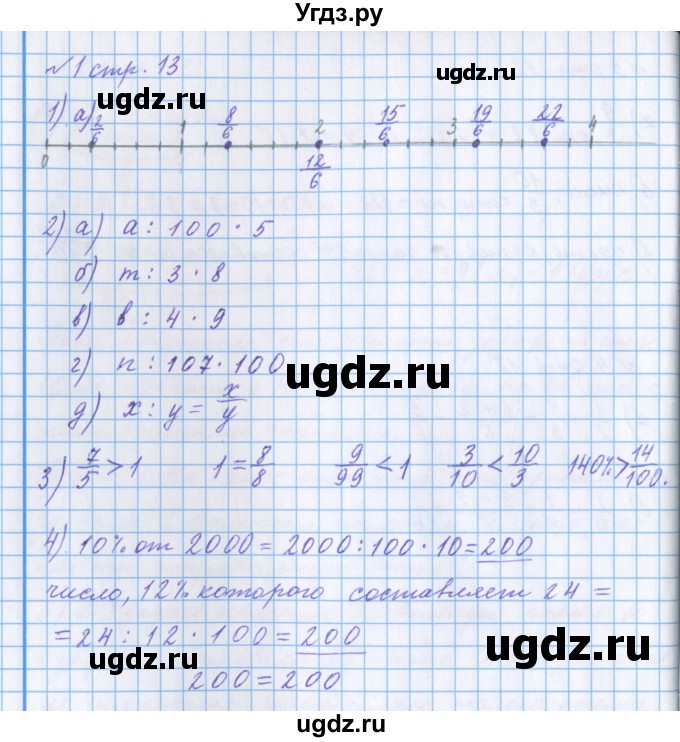 Угдз.ру
№1 стр. 13
ugdz.ru ugdz.ru
1) а) 2/6 1 8/6 2 15/6 3 19/6 22/6 4
0 12/6
2) а) a : 100 · 5
б) m : 3 · 8
в) b : 4 · 9
г) n : 107 · 100
ugdz.ru
д) x : y = x/y
3) 7/5 > 1 1 = 8/8 9/99 < 1 3/10 < 10/3 140% > 14/100.
ugdz.ru
4) 10% от 2000 = 2000 : 100 · 10 = 200
число, 12% которого составляет 24 =
= 24 : 12 · 100 = 200
ugdz.ru
ugdz.ru
200 = 200
ugdz.ru